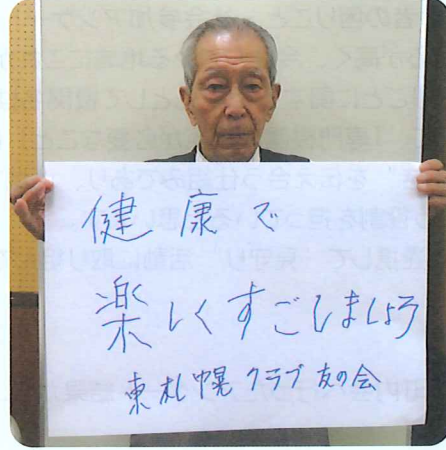 健康で
楽しくすごしましょう
東札幌クラブ友の会